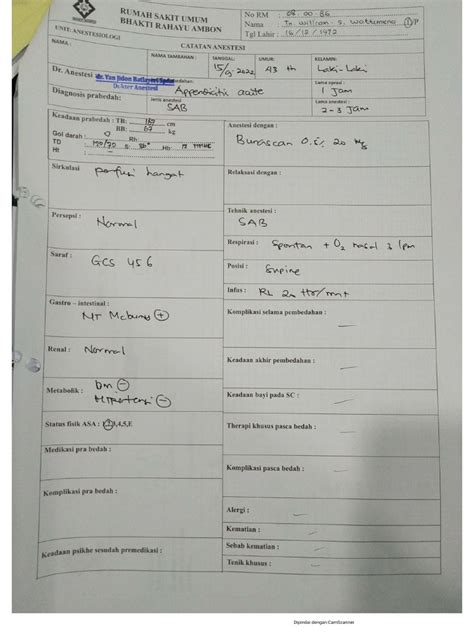 RUMAH SAKIT UMUM
BHAKTI RAHAYU AMBON
UNIT: ANESTESIOLOGI
No RM : 08. 00. 86
Nama : Tn. William. S. L/P
Tgl Lahir : 16/12/1972
CATATAN ANESTESI
NAMA :
NAMA TAMBAHAN :
TANGGAL: 15/9 2022
UMUR: 43 th
KELAMIN: Laki-Laki
Dr. Anestesi :
Dokter Anestesi
Diagnosis prabedah: Appendicitis acute
Jenis anestesi
SAB
Lama operasi :
1 Jam
Lama anestesi
2-3 Jam
Keadaan prabedah : TB: cm
BB: 67 kg
Gol darah : O Rh:
TD
Ht :
Anestesi dengan :
Bunascan 0.5% 20 mg
Sirkulasi
perfusi hangat
Relaksasi dengan :
Persepsi :
Normal
Teknik anestesi :
SAB
Respirasi : Spontan + O2 nasal 3 lpm
Saraf :
GCS 456
Posisi : Supine
Infus : RL
Gastro – intestinal :
NT Mcburney +
Komplikasi selama pembedahan :
—
Renal : Normal
Keadaan akhir pembedahan :
—
Metabolik : Dm -
Hipertensi -
Keadaan bayi pada SC :
—
Status fisik ASA : 1,2,3,4,5,E
Therapi khusus pasca bedah :
—
Medikasi pra bedah :
Komplikasi pasca bedah :
—
Komplikasi pra bedah :
Alergi :
—
Kematian :
—
Keadaan psikhe sesudah premedikasi :
Sebab kematian :
—
Tenik khusus :
—
Dipindai dengan CamScanner